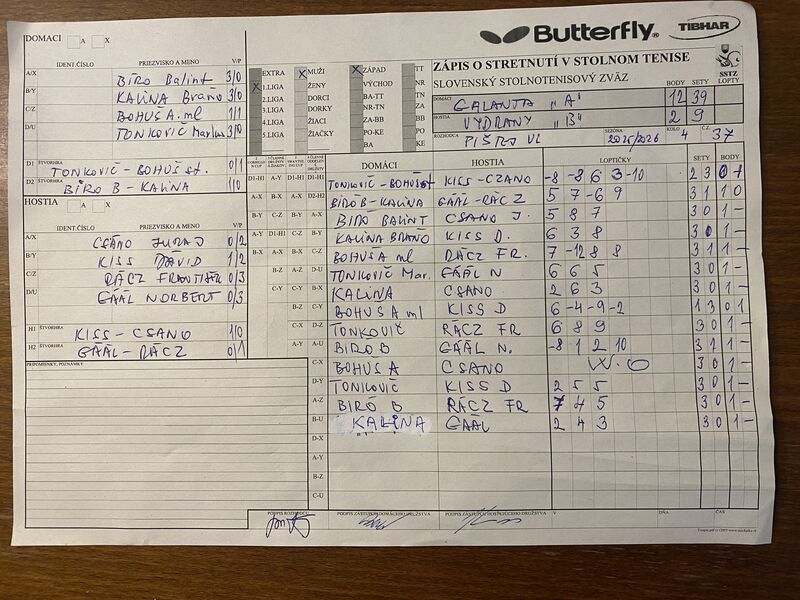 Butterfly
TIBHAR
DOMACI A X
IDENT.ČÍSLO PRIEZVISKO A MENO V/P
A/X BIRO Balint 3/0
B/Y KALINA Braňo 3/0
C/Z BOHUŠ A. ml 1/1
D/U TONKOVIČ Markus 3/0
D1 ŠTVORHRA TONKOVIČ - BOHUŠ st. 0/1
D2 ŠTVORHRA BIRO B - KALINA 1/0
HOSTIA A X
IDENT.ČÍSLO PRIEZVISKO A MENO V/P
A/X CSÁNO JURAJ 0/2
B/Y KISS DÁVID 1/2
C/Z RÁCZ FRANTIŠEK 0/3
D/U GÁÁL NORBERT 0/3
H1 ŠTVORHRA KISS - CSANO 1/0
H2 ŠTVORHRA GÁÁL - RÁCZ 0/1
PRIPOMIENKY, POZNÁMKY
EXTRA X MUŽI X ZÁPAD TT
X 1.LIGA ŽENY VÝCHOD NR
2.LIGA DORCI BA-TT TN
3.LIGA DORKY NR-TN ZA
4.LIGA ŽIACI ZA-BB BB
5.LIGA ŽIAČKY PO-KE PO
BA KE
ZÁPIS O STRETNUTÍ V STOLNOM TENISE
SLOVENSKÝ STOLNOTENISOVÝ ZVÄZ
SSTZ
BODY SETY LOPTY
DOMACI GALANTA "A" 12 39
HOSTIA VYDRANY "B" 2 9
ROZHODCA PIŠTEJ VL SEZÓNA 2025/2026 KOLO 4 Č.Z. 37
DOMÁCI HOSTIA LOPTIČKY SETY BODY
D1-H1 TONKOVIČ - BOHUŠ st KISS - CZANO -8 -8 6 3 -10 2 3 0 1
D2-H2 BIRO B - KALINA GÁÁL - RÁCZ 5 7 -6 9 3 1 1 0
A-X BIRO BALINT CSANO J. 5 8 7 3 0 1 -
B-Y KALINA BRAŇO KISS D. 6 3 8 3 0 1 -
C-Z BOHUŠ A ml RÁCZ FR. 7 -12 8 8 3 1 1 -
D-U TONKOVIČ Mar. GÁÁL N 6 6 5 3 0 1 -
B-X KALINA CSANO 2 6 3 3 0 1 -
C-Y BOHUŠ A ml KISS D 6 -4 -9 -2 1 3 0 1
D-Z TONKOVIČ RÁCZ FR 6 8 9 3 0 1 -
A-U BIRO B GÁÁL N. -8 1 2 10 3 1 1 -
C-X BOHUS A CSANO W.O 3 0 1 -
D-Y TONKOVIČ KISS D 2 5 5 3 0 1 -
A-Z BIRÓ B RÁCZ FR 7 4 5 3 0 1 -
B-U KALINA GÁÁL 2 4 3 3 0 1 -
D-X
A-Y
B-Z
C-U
PODPIS ROZHODCU PODPIS ZÁSTUPCU DOMÁCEHO DRUŽSTVA PODPIS ZÁSTUPCU HOSŤUJÚCEHO DRUŽSTVA V DŇA ČAS